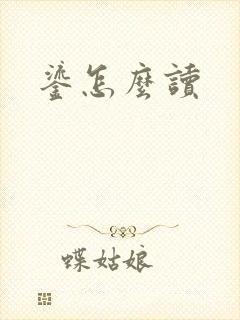 鎏怎麼讀
蝶姑娘